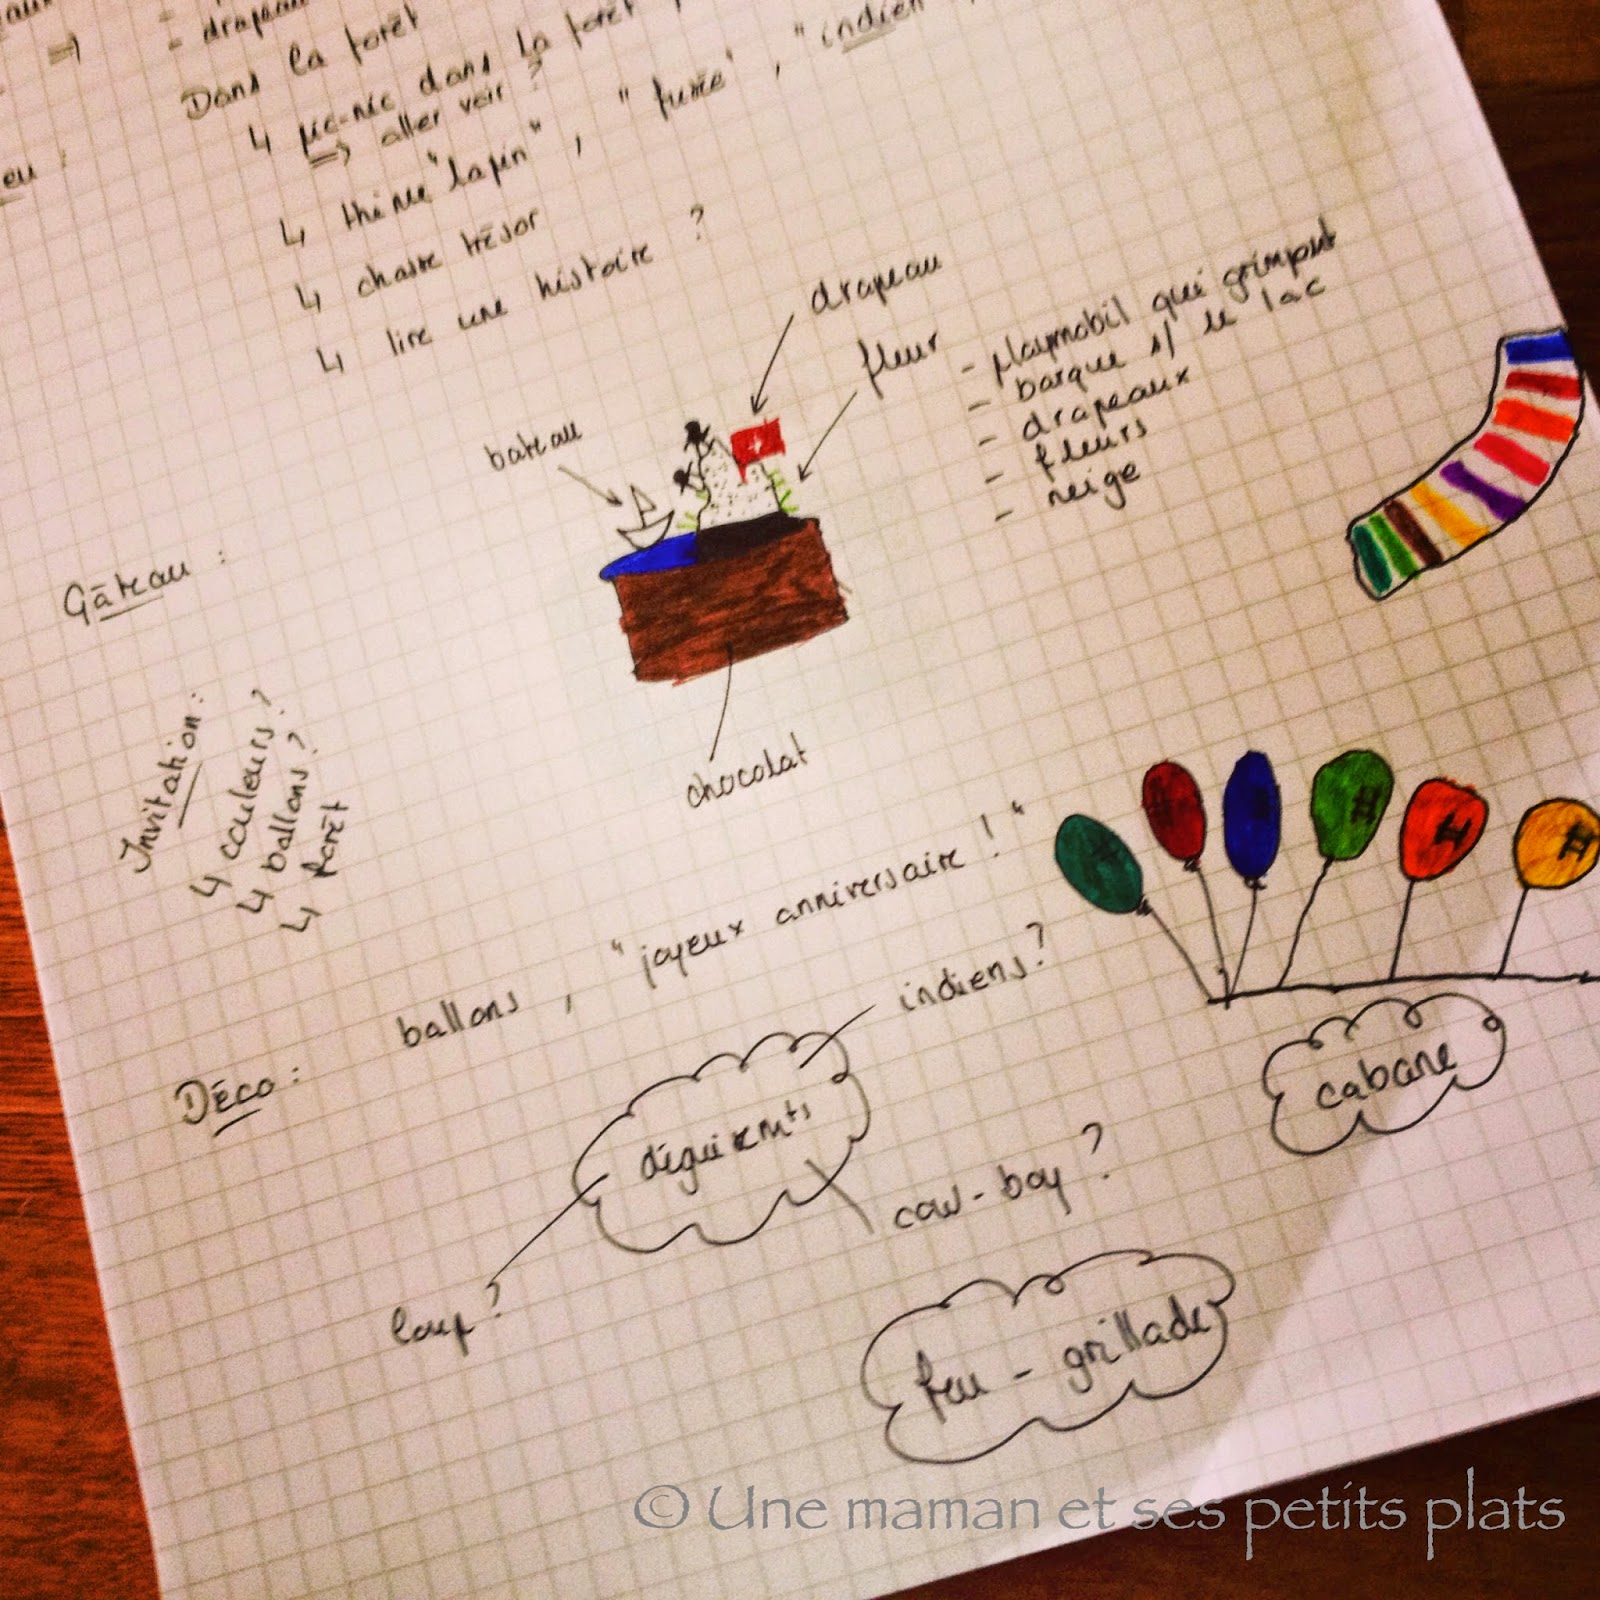 ⇒ = drapeau
Dans la forêt
↳ pic-nic dans la forêt
⇒ aller voir ?
↳ thème "lapin", "fusée", "indien
↳ chasse trésor
↳ lire une histoire ?
drapeau
fleur
bateau
- playmobil qui grimpent
- barque s/ le lac
- drapeaux
- fleurs
- neige
Gâteau :
chocolat
Invitation :
↳ couleurs ?
↳ ballons ?
↳ forêt
Déco : ballons, "joyeux anniversaire ! "
indiens ?
déguisemts
cabane
cow-boy ?
loup ?
feu - grillade
© Une maman et ses petits plats